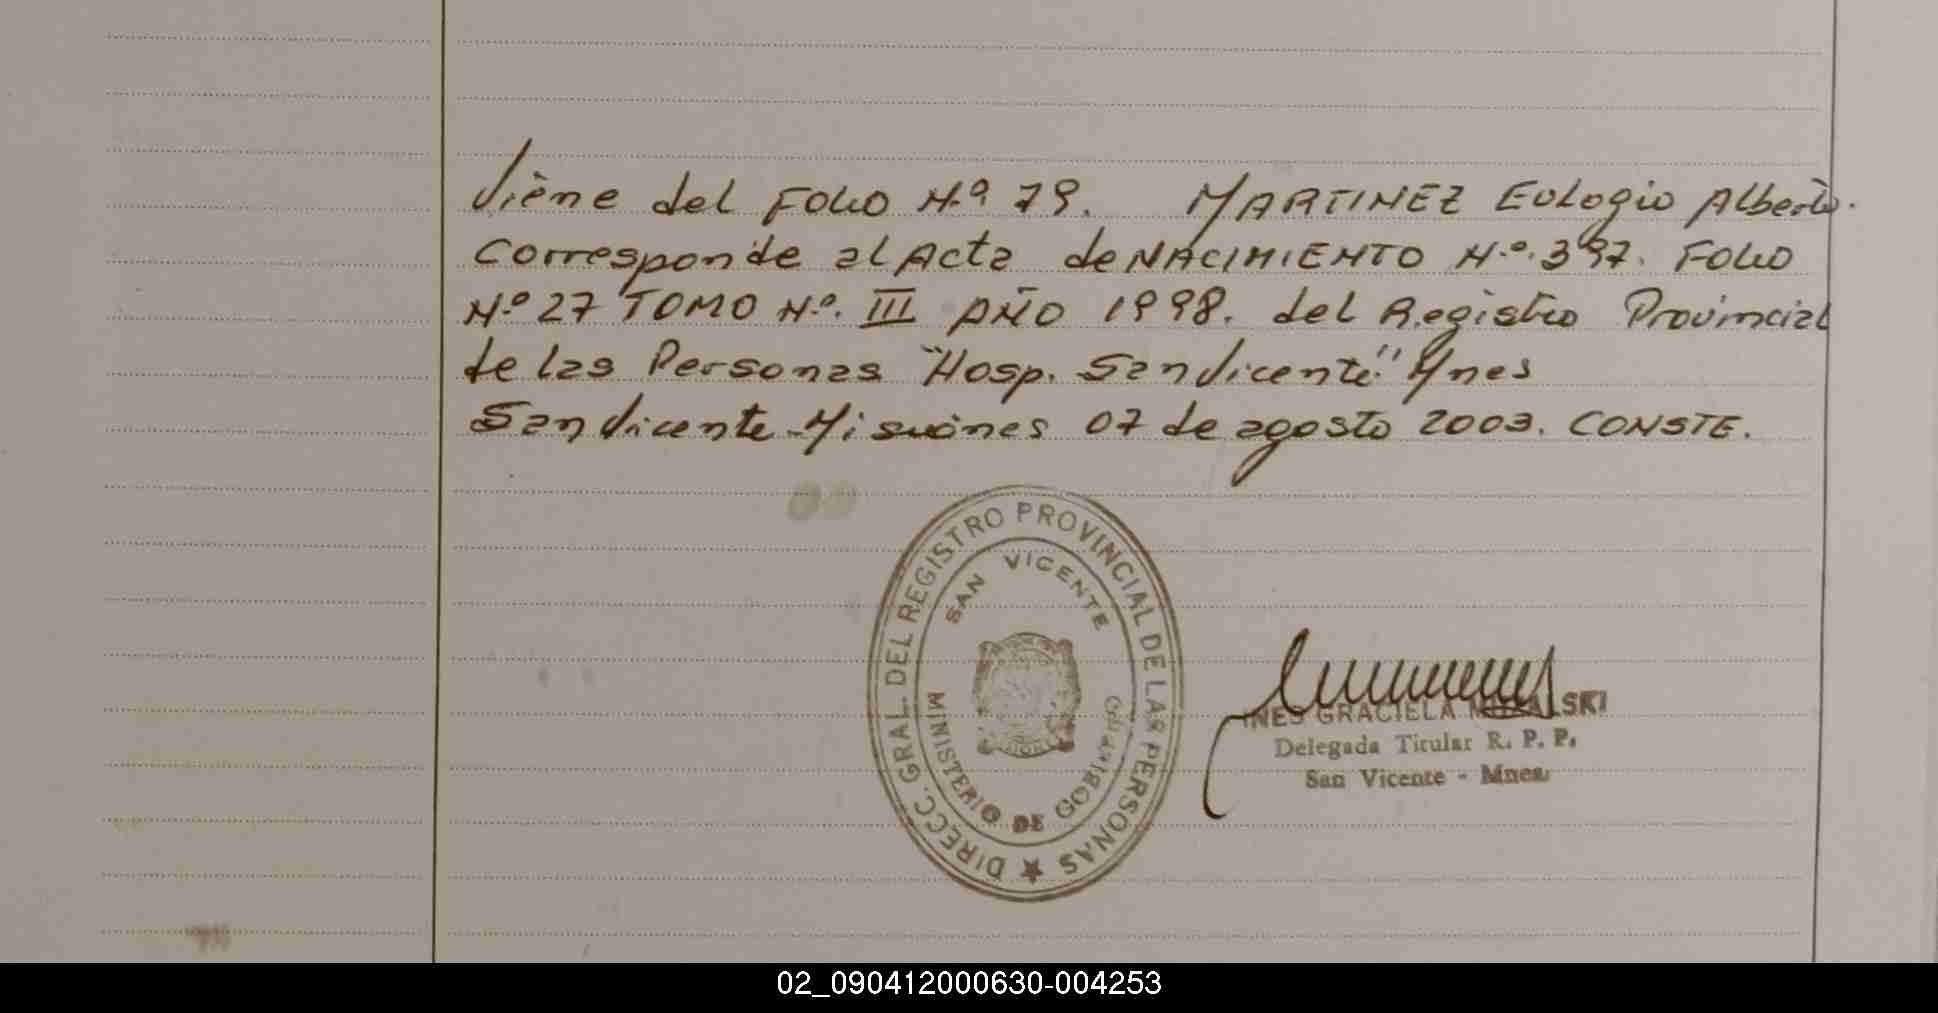 Viene del FOLIO N.º 79. MARTINEZ Eulogio Alberto.
Corresponde al Acta de NACIMIENTO N.º 397. FOLIO
Nº 27 TOMO Nº. III AÑO 1998. del Registro Provincial
de las Personas "Hosp. San Vicente" Mnes
San Vicente Misiones 07 de agosto 2003. CONSTE.
DIRECC. GRAL. DEL REGISTRO PROVINCIAL DE LAS PERSONAS
SAN VICENTE
MINISTERIO DE GOBIERNO
INES GRACIELA
Delegada Titular R. P. P.
San Vicente - Mnes.
02_090412000630-004253